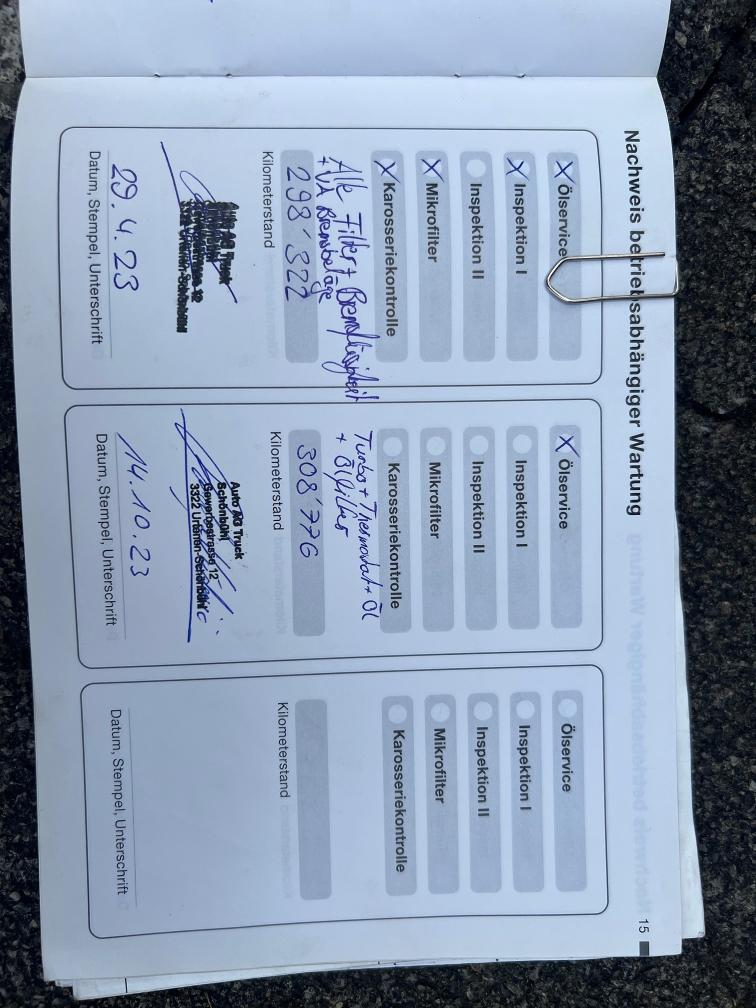 Nachweis betriebsabhängiger Wartung
X Ölservice
X Inspektion I
Inspektion II
X Mikrofilter
X Karosseriekontrolle
Alle Filter + Bremsflüssigkeit
+ VA Bremsbeläge
298'322
Kilometerstand
29.4.23
Datum, Stempel, Unterschrift
X Ölservice
Inspektion I
Inspektion II
Mikrofilter
Karosseriekontrolle
Turbo + Thermostat + Öl
+ Ölfilter
308'776
Kilometerstand
Auto AG Truck
Schönbühl
Gewerbestrasse 12
3322 Urtenen-Schönbühl
14.10.23
Datum, Stempel, Unterschrift
Ölservice
Inspektion I
Inspektion II
Mikrofilter
Karosseriekontrolle
Kilometerstand
Datum, Stempel, Unterschrift
15